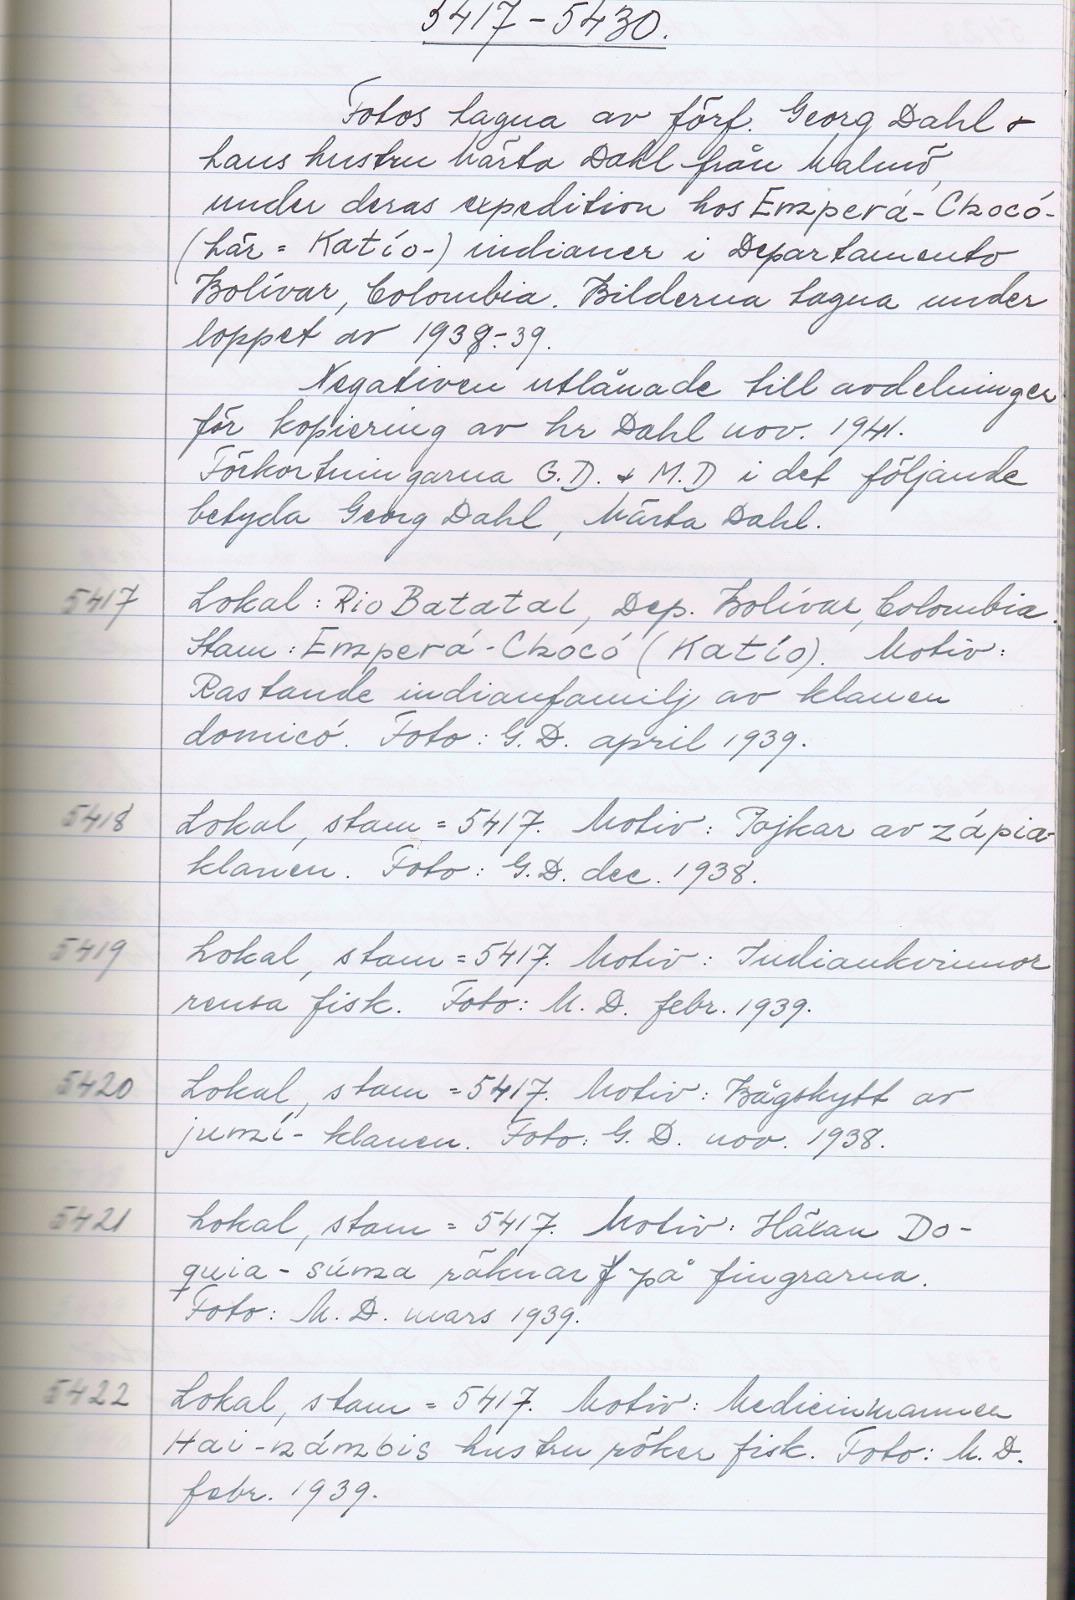 5417-5430.
Fotos tagna av förf. Georg Dahl &
hans hustru Märta Dahl från Malmö,
under deras expedition hos Emperá-Chocó-
(här = Katío-) indianer i Departamento
Bolívar, Colombia. Bilderna tagna under
loppet av 1938-39.
Negativen utlånade till avdelningen
för kopiering av hr Dahl nov. 1941.
Förkortningarna G.D. & M.D i det följande
betyda Georg Dahl, Märta Dahl.
5417 Lokal: Rio Batatal, Dep. Bolívar, Colombia.
Stam: Emperá-Chocó (Katío). Motiv:
Rastande indianfamilj av klanen
domicó. Foto: G.D. april 1939.
5418 Lokal, stam = 5417. Motiv: Pojkar av zápia-
klanen. Foto: G.D. dec. 1938.
5419 Lokal, stam = 5417. Motiv: Indiankvinnor
rensa fisk. Foto: M.D. febr. 1939.
5420 Lokal, stam = 5417. Motiv: Bågskytt av
jumí-klanen. Foto: G.D. nov. 1938.
5421 Lokal, stam = 5417. Motiv: Häxan Do-
quia-súma räknar på fingrarna.
Foto: M.D. mars 1939.
5422 Lokal, stam = 5417. Motiv: Medicinmannen
hustru röker fisk. Foto: M.D.
febr. 1939.